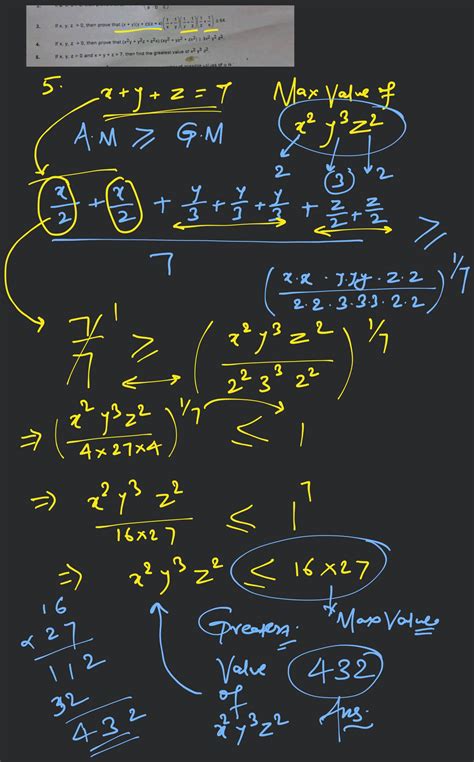 3. If x, y, z > 0, then prove that (x + y)(y + z)(z + x)
4. If x, y, z > 0, then prove that
5. If x, y, z > 0 and x + y + z = 7, then find the greatest value of x² y³ z².
5. x + y + z = 7 Max Value of
A.M ≥ G.M x² y³ z²
2 3 2
x/2 + x/2 + y/3 + y/3 + y/3 + z/2 + z/2
7 ≥ (x.x.y.y.y.z.z / 2.2.3.3.3.2.2)^1/7
7/7 1 ≥ (x² y³ z² / 2² 3³ 2²)^1/7
⇒ (x² y³ z² / 4×27×4)^1/7 ≤ 1
⇒ x² y³ z² / 16×27 ≤ 1^7
⇒ x² y³ z² ≤ 16×27
Max Value
16
× 27
112
32
432
Greatest
Value
of
x² y³ z²
432
Ans.